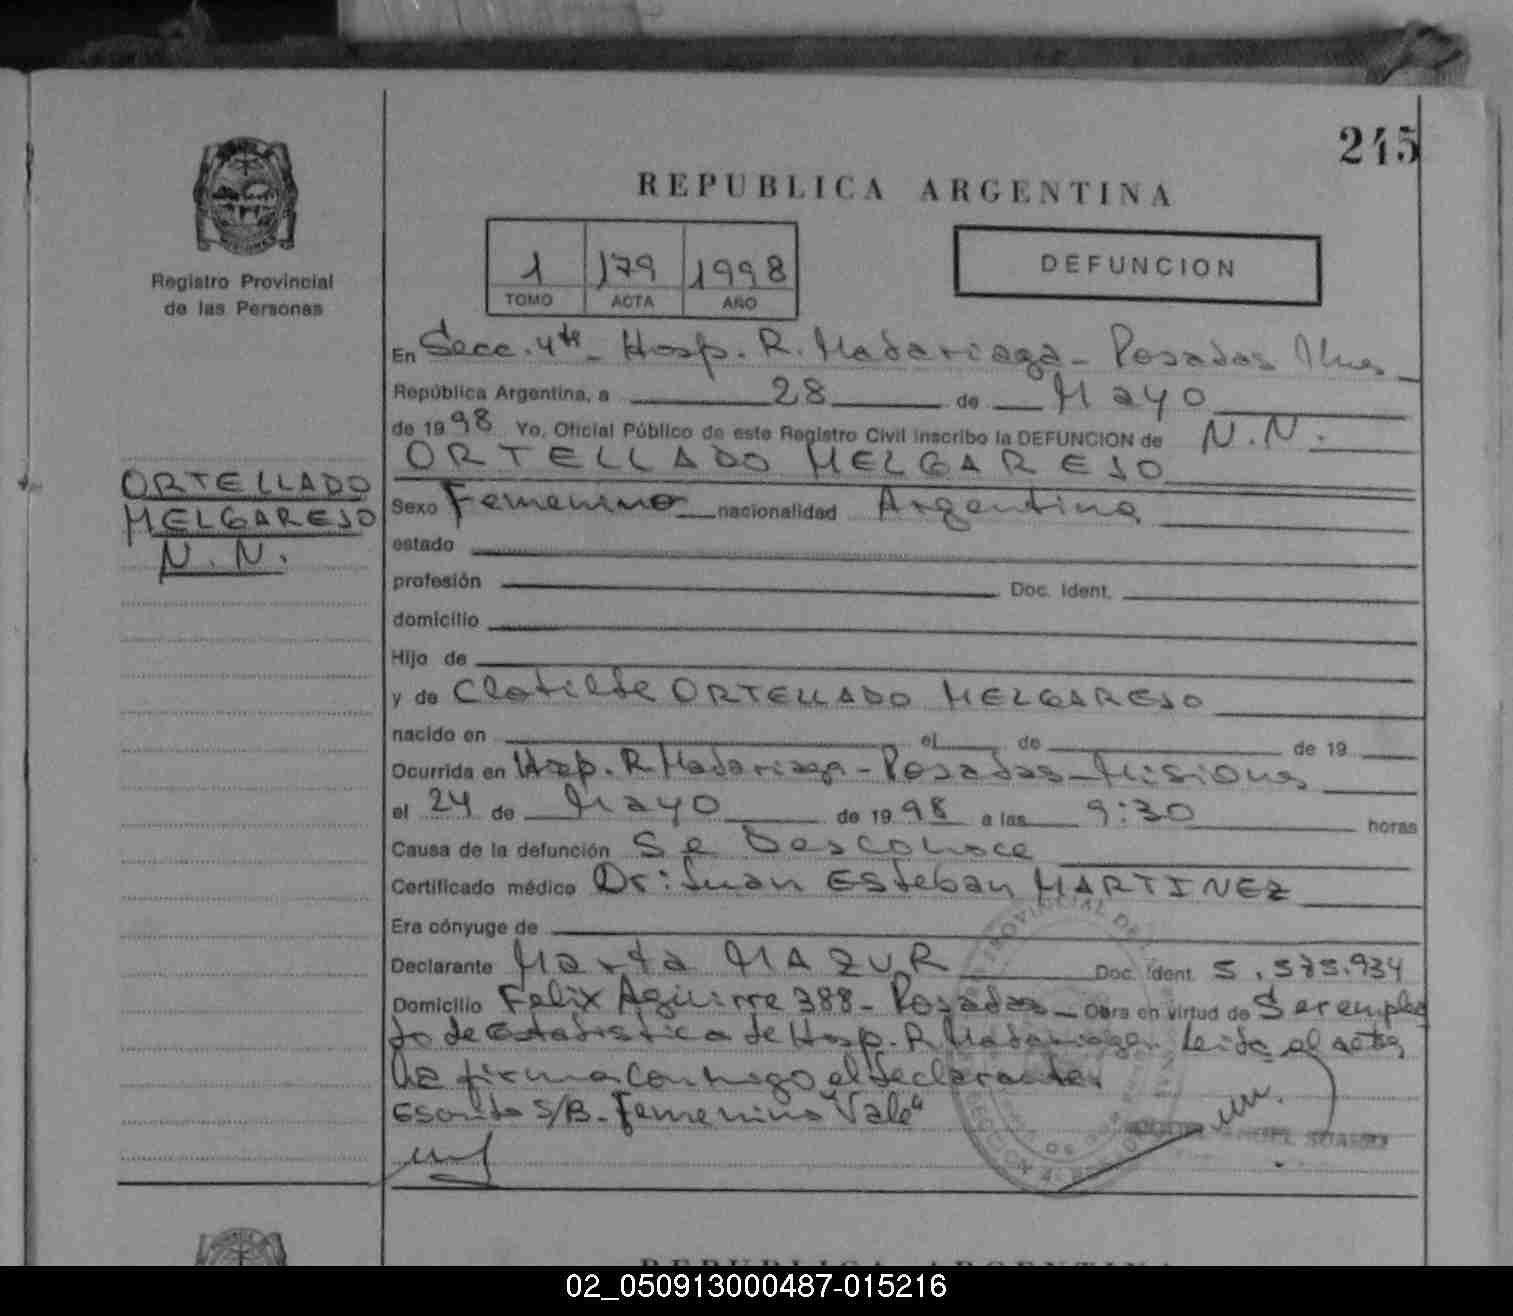 245
REPUBLICA ARGENTINA
Registro Provincial
de las Personas
1 179 1998
TOMO ACTA AÑO
DEFUNCION
En Secc. 4ta - Hosp. R. Madariaga - Posadas Mnes
República Argentina, a 28 de Mayo
de 1998 Yo, Oficial Público de este Registro Civil inscribo la DEFUNCION de N.N.
ORTELLADO MELGAREJO
ORTELLADO
MELGAREJO
N.N.
Sexo Femenino nacionalidad Argentina
estado
profesión Doc. Ident.
domicilio
Hijo de
y de Clotilde ORTELLADO MELGAREJO
nacido en el de de 19
Ocurrida en Hosp. R Madariaga - Posadas - Misiones
el 24 de Mayo de 1998 a las 9:30 horas
Causa de la defunción Se Desconoce
Certificado médico Dr: Juan Esteban MARTINEZ
Era cónyuge de
Declarante Marta MAZUR Doc. Ident. 5.575.934
Domicilio Felix Aguirre 388 - Posadas - Obra en virtud de Ser emplea
do de Estadistica de Hosp. R Madariaga. Leida el acta
la firma conmigo el declarante.
Escrito S/B - Femenino "Vale"
REPUBLICA ARGENTINA
02_050913000487-015216